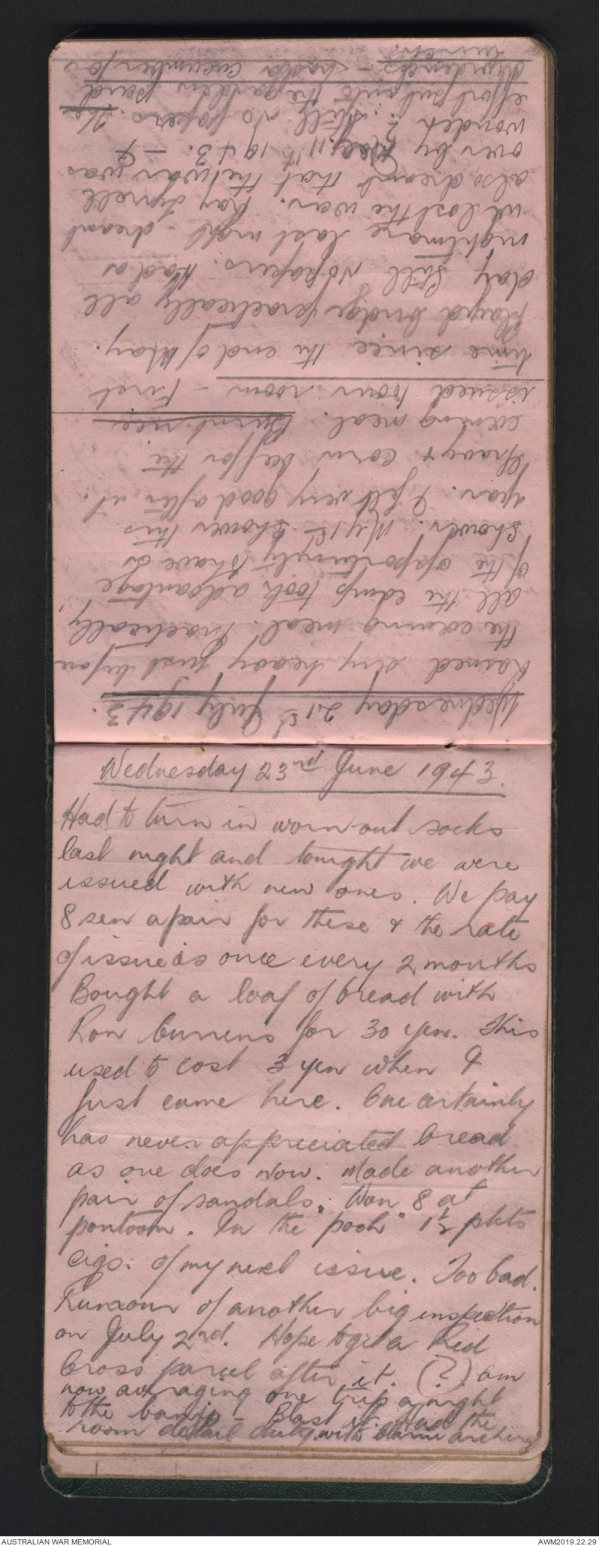 Wednesday 21st July 1943.
Rained very heavy just before
the evening meal. Practically
all the camp took advantage
of the opportunity to have a
shower. My 1st shower this
year. I felt very good after it.
Gravy & corn beef for the
evening meal. Burnt rice
issued from room - First
time since the end of May.
Played bridge practically all
day. Still no papers. Had a
nightmare last night - dreamt
we lost the war. Ray Tyrrell
also dreamt that the war was
over by Dec. 11th 1943. - I
wonder? Still no papers. The
effort put into the garden paid
dividends - had a cucumber for
Wednesday 23rd June 1943.
Had to turn in worn out socks
last night and tonight we were
issued with new ones. We pay
8 sen a pair for these & the rate
of issue is once every 2 months
Bought a loaf of bread with
Ron for 30 yen. This
used to cost 3 yen when I
first came here. One certainly
has never appreciated bread
as one does now. Made another
pair of sandals. Won 8 at
pontoon. In the pooh 1½ pkts
cigs. of my next issue. Too bad.
Rumour of another big inspection
on July 2nd. Hope to get a Red
Cross parcel after it. (?) am
now averaging one trip a night
to the banjo - Blast it. Had the
room detail duty with
AUSTRALIAN WAR MEMORIAL
AWM2019.22.29